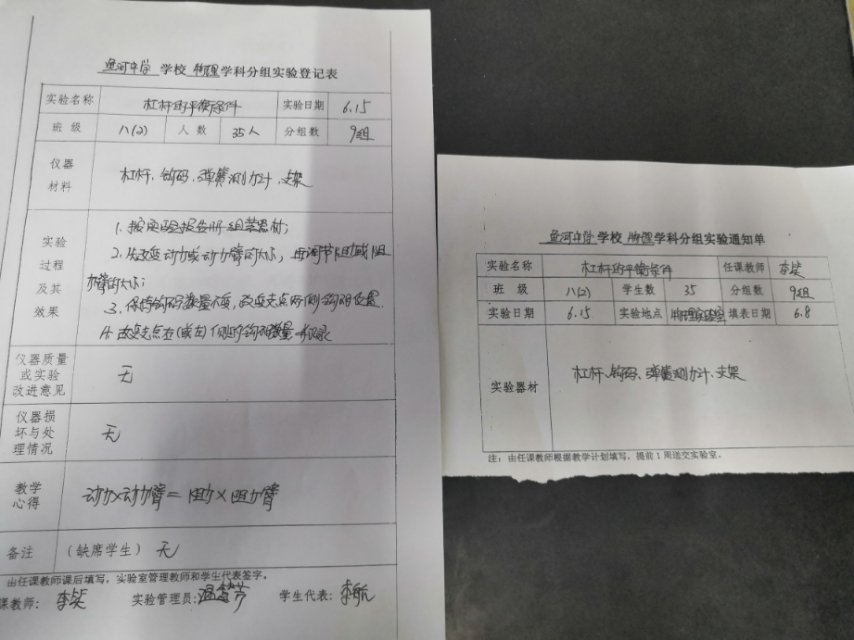 鱼河中学 学校 物理 学科分组实验登记表
实验名称 杠杆的平衡条件 实验日期 6.15
班 级 八(2) 人 数 35人 分组数 9组
仪器材料 杠杆、钩码、弹簧测力计、支架
实验过程及其效果
1. 按实验报告册组装器材;
2. 改变动力或动力臂的大小, 再调节阻力或阻
力臂的大小;
3. 保持钩码数量不变, 改变支点两侧钩码位置.
4. 改变支点左(或右)侧的钩码数量
仪器质量或实验改进意见 无
仪器损坏与处理情况 无
教学心得 动力×动力臂=阻力×阻力臂
备注 (缺席学生) 无
由任课教师课后填写,实验室管理教师和学生代表签字。
课教师: 李 实验管理员: 学生代表: 李
鱼河中学 学校 物理 学科分组实验通知单
实验名称 杠杆的平衡条件 任课教师 李
班 级 八(2) 学生数 35 分组数 9组
实验日期 6.15 实验地点 物理实验室 填表日期 6.8
实验器材 杠杆、钩码、弹簧测力计、支架
注:由任课教师根据教学计划填写,提前1周送交实验室。